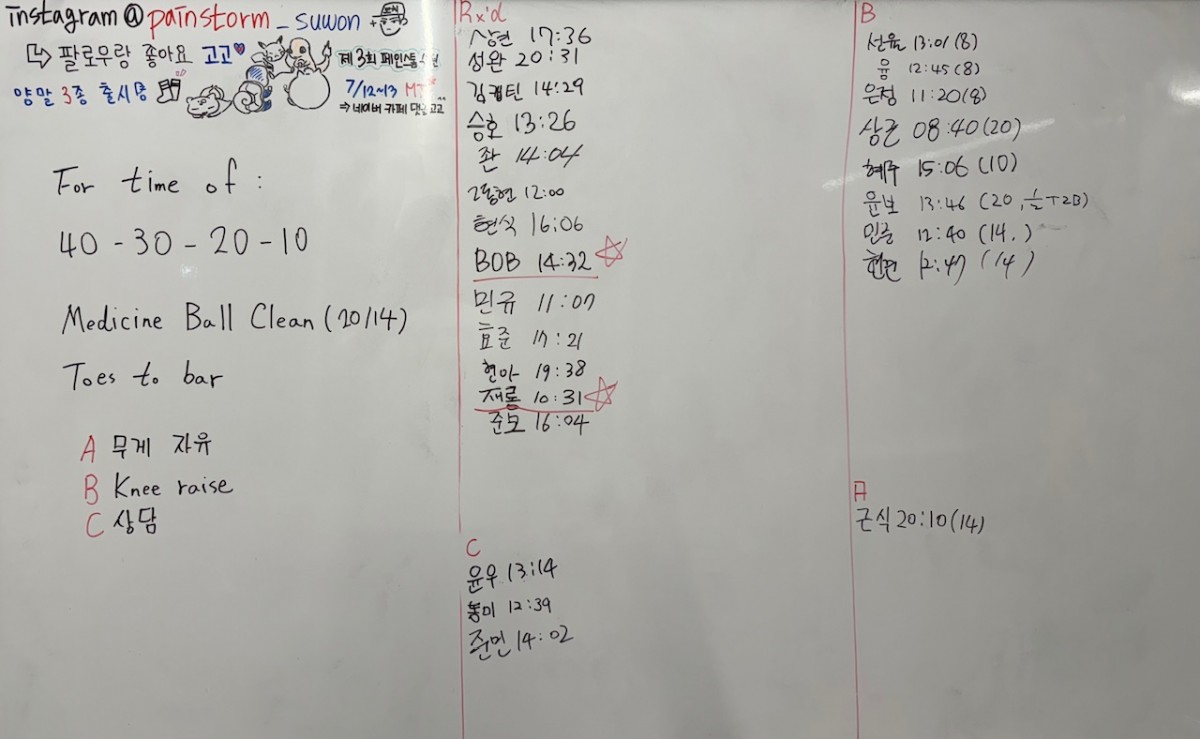 instagram@painstorm_suwon
↳ 팔로우랑 좋아요 고고♥
양말 3종 출시중
제3회 페인스톰
7/12~13 MT
⇒ 네이버 카페 댓글 고고
For time of :
40 - 30 - 20 - 10
Medicine Ball Clean (20/14)
Toes to bar
A 무게 자유
B Knee raise
C 상담
Rx'd
상현 17:36
성완 20:31
김캡틴 14:29
승호 13:26
좐 14:04
고동현 12:00
현식 16:06
BOB 14:32 ☆
민규 11:07
효준 17:21
현아 19:38
재룡 10:31 ☆
준모 16:04
C
윤우 13:14
12:39
준민 14:02
B
선율 13:01 (8)
융 12:45 (8)
은정 11:20 (8)
상근 08:40 (20)
혜주 15:06 (10)
윤보 13:46 (20, ½+2B)
민준 12:40 (14.)
12:47 (14)
A
근식 20:10 (14)